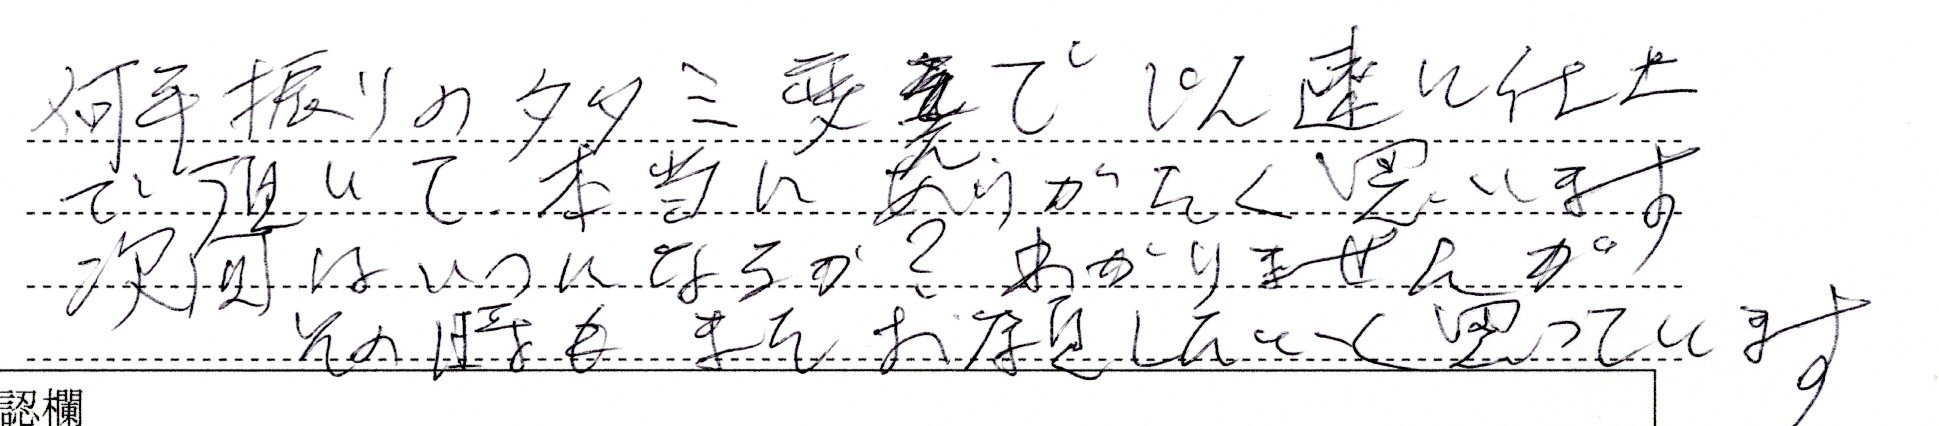 何年振りのタタミ変えで じん速に仕上
で頂いて 本当に ありがたく思います
次回はいつになるか? わかりませんが
その時も またお願したく思っています
認欄